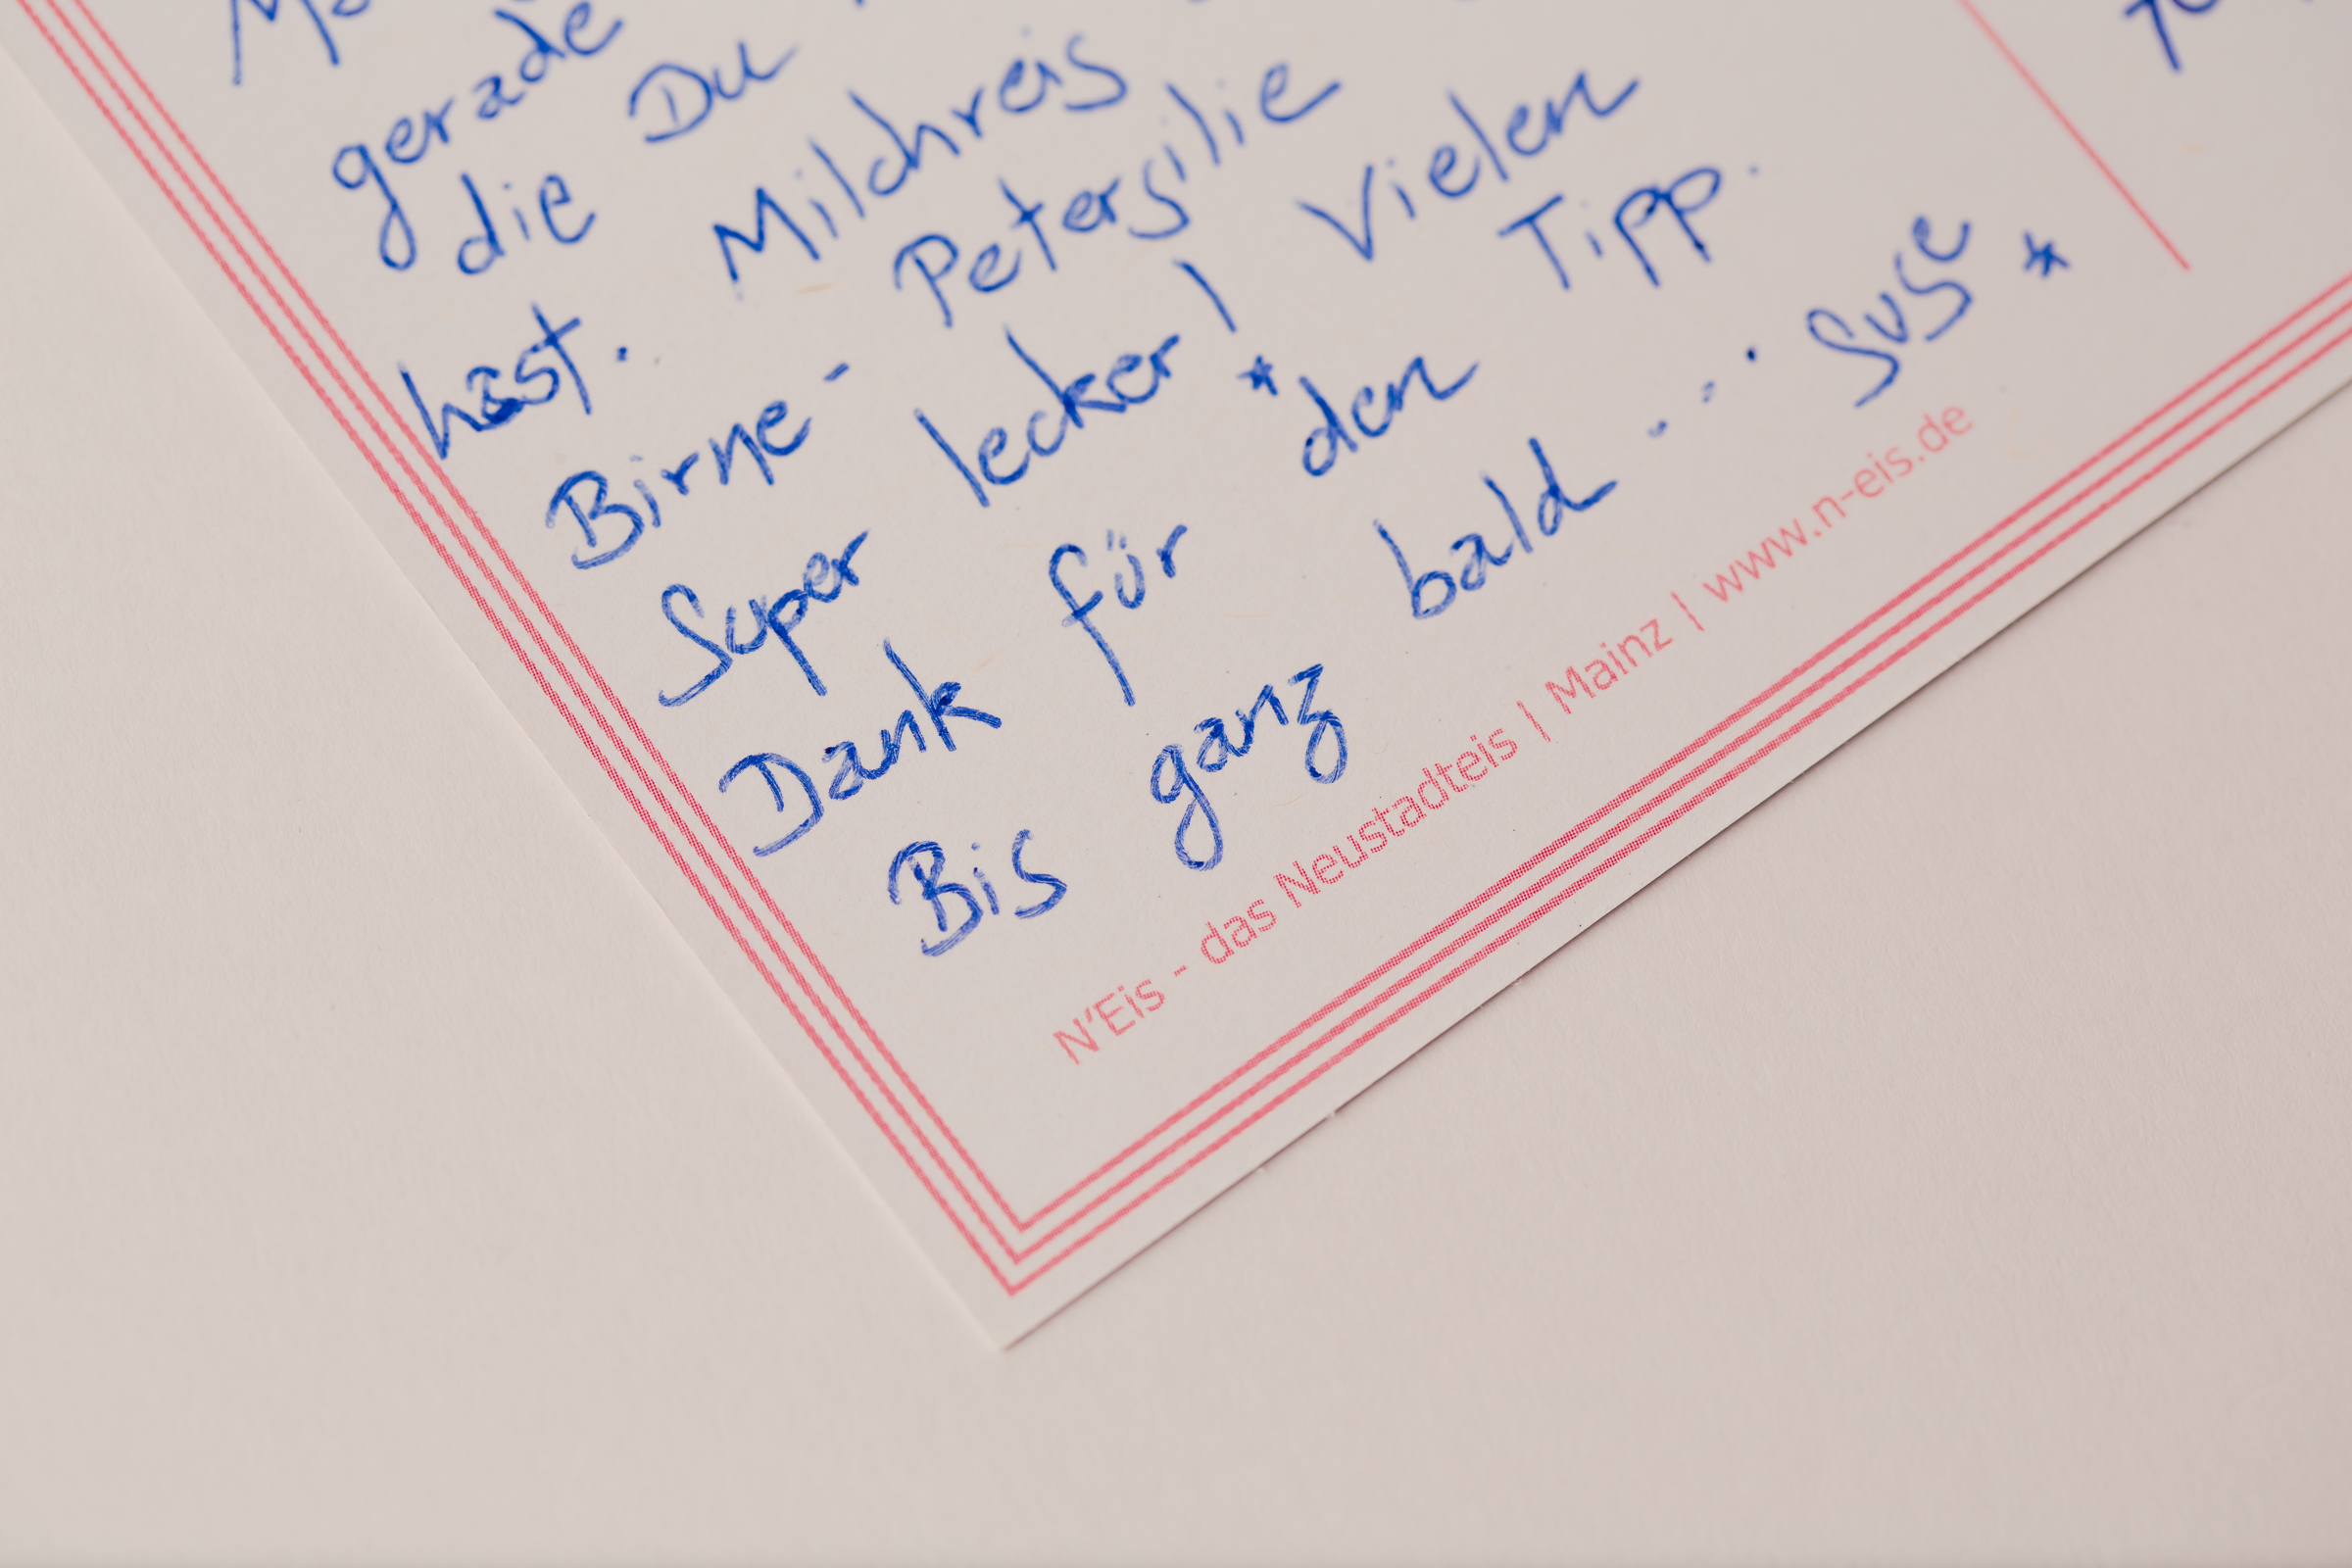 gerade
die Du
hast. Milchreis
Birne - Petersilie
Super lecker! Vielen
Dank für den Tipp.
Bis ganz bald ... Suse *
N'Eis - das Neustadteis | Mainz | www.n-eis.de